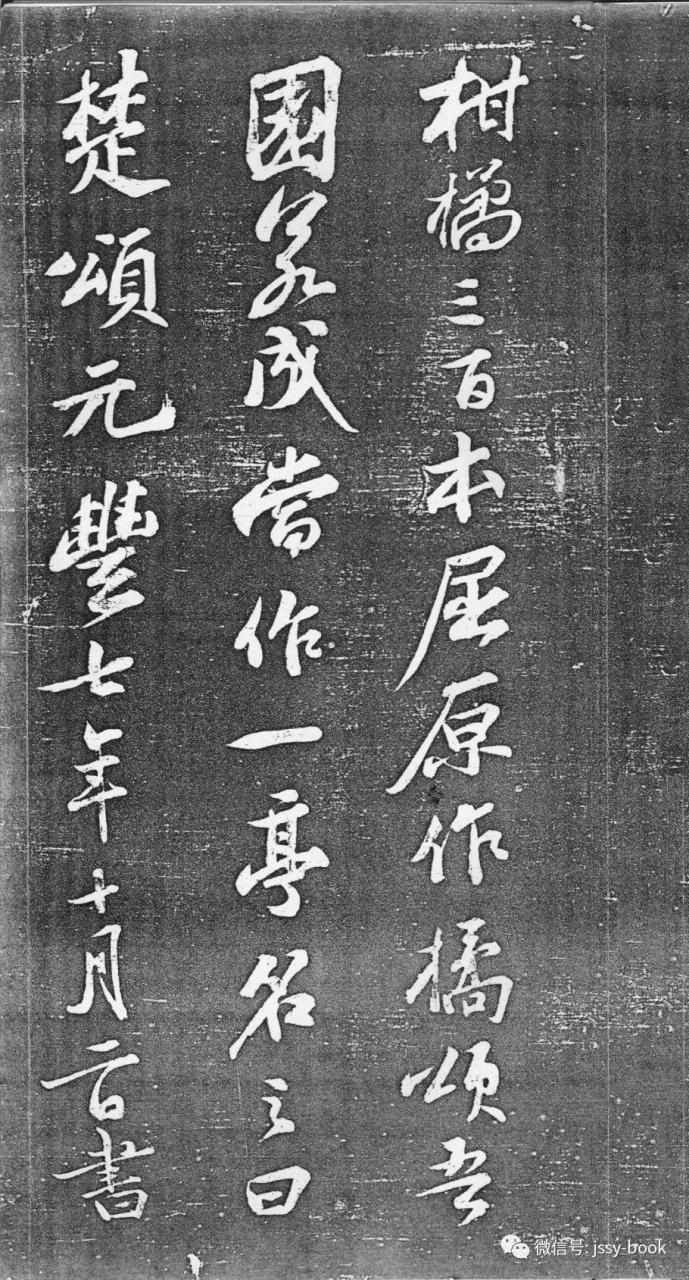 柑橘三百本屈原作橘頌吾
園若成當作一亭名之曰
楚頌元豐七年十月二日書
微信号: jssy-book